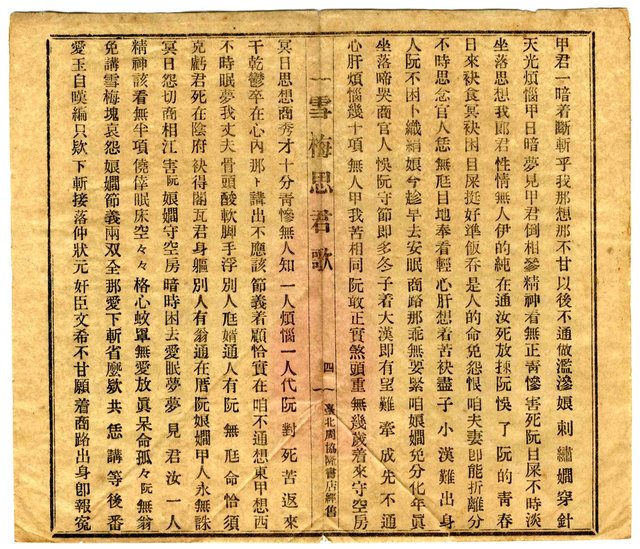 甲君一暗着斷斬乎我那想那不甘以後不通做濫滲娘刺繡嫺穿針
天光煩惱甲日暗夢見甲君倒相參精神看無正青慘害死阮目屎不時淡
坐落思想我郎君性情無人伊的純在通汝死放揀阮悞了阮的青春
日來袂食眞袂困目屎挺好準飯吞是人的命免怨恨咱夫妻即能折離分
不時思念官人恁無尫目地奉看輕心肝想着苦袂盡子小漢難出身
人阮不困卜織絹娘今趁早去安眠商路那乖無要緊咱娘嫺免分化年眞
坐落啼哭商官人悞阮守節即多冬子着大漢即有望難牽成先不通
心肝煩惱幾十項無人甲我苦相同阮敢正實煞頭重無幾歲着來守空房
一雪梅思君歌 四 臺北周協隆書店經售
冥日思想商秀才十分青慘無人知一人煩惱一人代阮對死苦返來
干乾鬱卒在心內那卜講出不應該節義着顧恰實在咱不通想東甲想西
不時眠夢我丈夫骨頭酸軟脚手浮別人尫婿通人有阮無尫命恰須
克虧君死在陰府袂得閣瓦君身軀別人有翁通在厝阮娘嫺甲人永無誅
冥日怨切商相江害阮娘嫺守空房暗時困去愛眠夢夢見君汝一人
精神該看無半項僥倖眠床空々々格心蚊罩無愛放眞呆命孤々阮無翁
免講雪梅塊哀怨娘嫺節義兩双全那愛下斬省麼欵共恁講等後番
愛玉自嘆編只欵下斬接落仲狀元奸臣文希不甘願着商路出身卽報冤